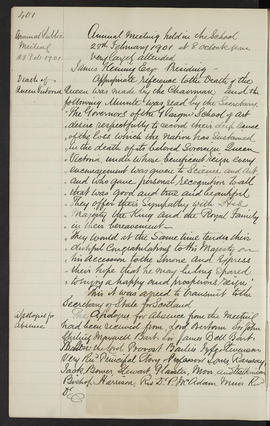 401
Annual Public
Meeting
28 Feb 1901
Annual Meeting held in the School
28th February 1901 at 8 o'clock
very largely attended
James Fleming Esq. Presiding
Death of
Queen Victoria
Appropriate reference to the Death of the
Queen was made by the Chairman and the
following Minute was read by the Secretary.
The Governors of the Glasgow School of Art
desire respectfully to record their deep sense
of the loss which the Nation has sustained
in the death of its beloved Sovereign Queen
Victoria, under whose beneficent reign every
encouragement was given to Science and Art,
and who gave personal recognition to all
that was good and true and beautiful.
They offer their Sympathy with His
Majesty the King and the Royal Family
in their bereavement.
They would at the same time tender their
dutiful Congratulations to His Majesty on
his Accession to the Throne and Express
their hope that he may be long spared
to enjoy a happy and prosperous reign.
This it was agreed to transmit to the
Secretary of State for Scotland
Apologies for
Absence
The Apologies for Absence from the Meeting
had been secured from Lord Sir John
Stirling Maxwell Bart. Sir James Bell Bart.
the Lord Provost Bailies
Very Revd. Principal Story Professors Ramsay
Jack Bower Stewart Glaister
Bishop Harrison, Revd. D. P. McAdam Muir